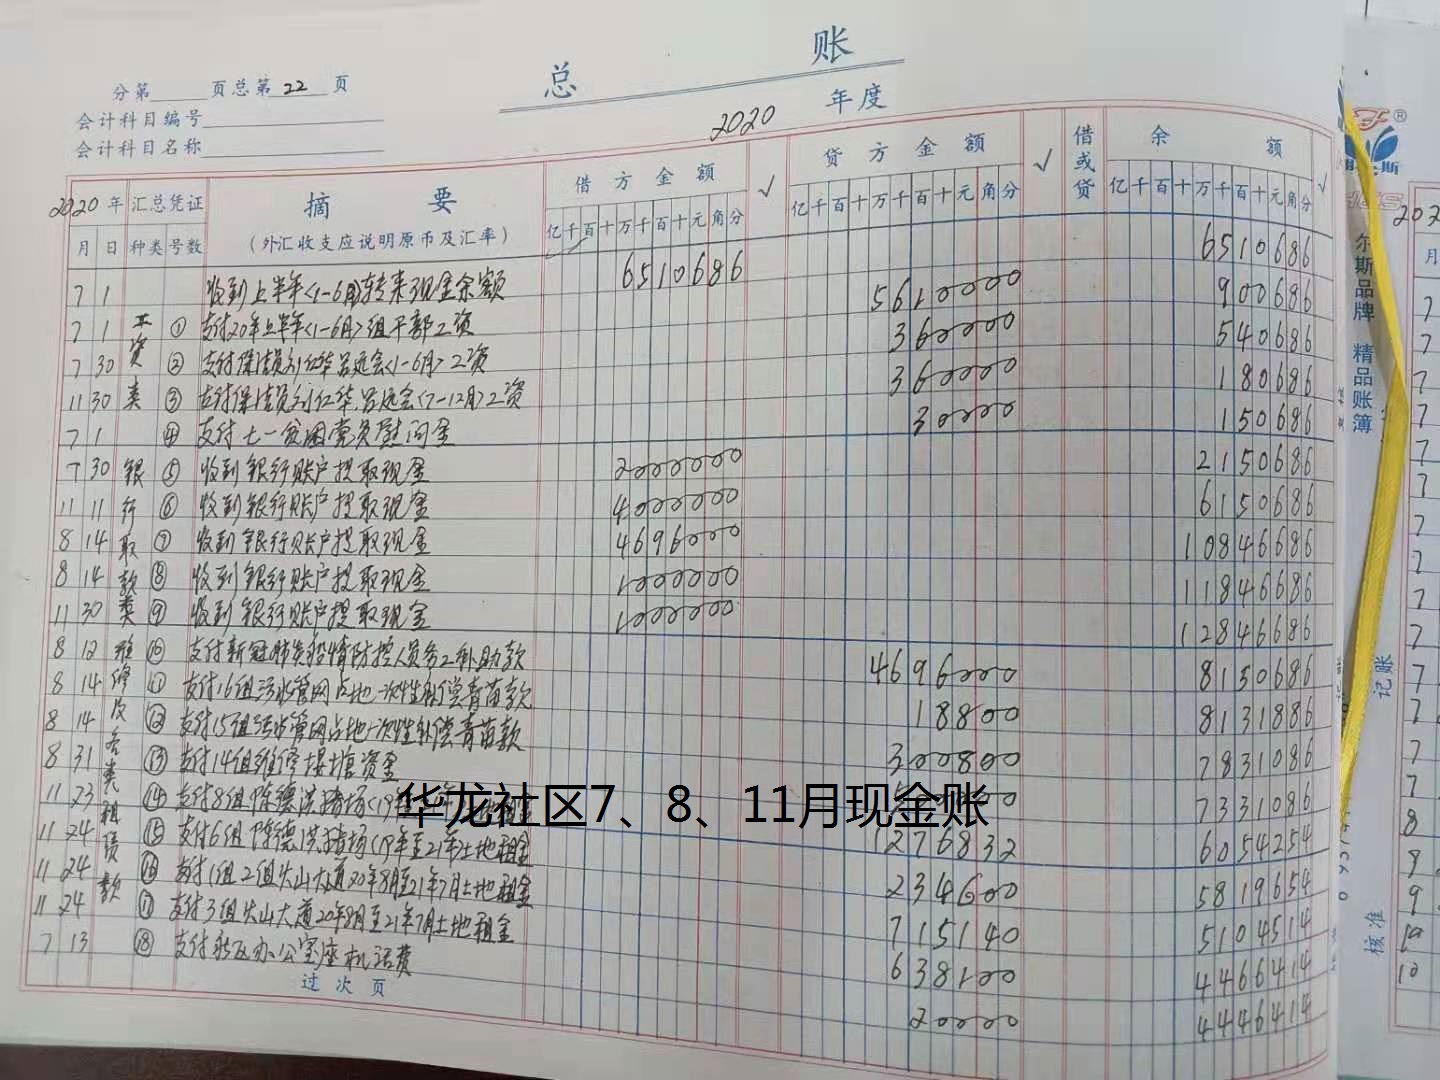 总 账
分第 页总第 22 页
会计科目编号
会计科目名称
2020 年度
2020 年 汇总凭证 摘 要 借方金额 √ 贷方金额 √ 借或贷 余 额 √
月 日 种类 号数 (外汇收支应说明原币及汇率) 亿千百十万千百十元角分 亿千百十万千百十元角分 亿千百十万千百十元角分
7 1 收到上半年<1-6月>转来现金余额 6510686 6510686
7 1 工 ① 支付20年上半年<1-6月>组干部工资 5610000 900686
7 30 资 ② 支付保洁员刘红华吕远会<1-6月>工资 360000 540686
11 30 类 ③ 支付保洁员刘红华、吕远会<7-12月>工资 360000 180686
7 1 ④ 支付七一贫困党员慰问金 30000 150686
7 30 银 ⑤ 收到银行账户提取现金 2000000 2150686
11 11 行 ⑥ 收到银行账户提取现金 4000000 6150686
8 14 取 ⑦ 收到银行账户提取现金 4696000 10846686
8 14 款 ⑧ 收到银行账户提取现金 1000000 11846686
11 30 类 ⑨ 收到银行账户提取现金 1000000 12846686
8 12 维 ⑩ 支付新冠肺炎疫情防控人员务工补助款 4696000 8150686
8 14 修 ⑪ 支付16组污水管网占地一次性补偿青苗款 18800 8131886
8 14 及 ⑫ 支付15组污水管网占地一次性补偿青苗款 300800 7831086
8 31 各 ⑬ 支付14组维修堰塘资金 7331086
11 23 类 ⑭ 支付8组陈德洪猪场<19 土地租金 1276832 6054254
11 24 租 ⑮ 支付6组陈德洪猪场<19年至21年>土地租金 234600 5819654
11 24 赁 ⑯ 支付1组2组火山大道20年8月至21年7月土地租金 715140 5104514
11 24 款 ⑰ 支付3组火山大道20年8月至21年7月土地租金 638100 4466414
7 13 ⑱ 支付社区办公室座机话费 20000 4446414
过次页
华龙社区7、8、11月现金账
尔斯品牌 精品账簿
记账
核准